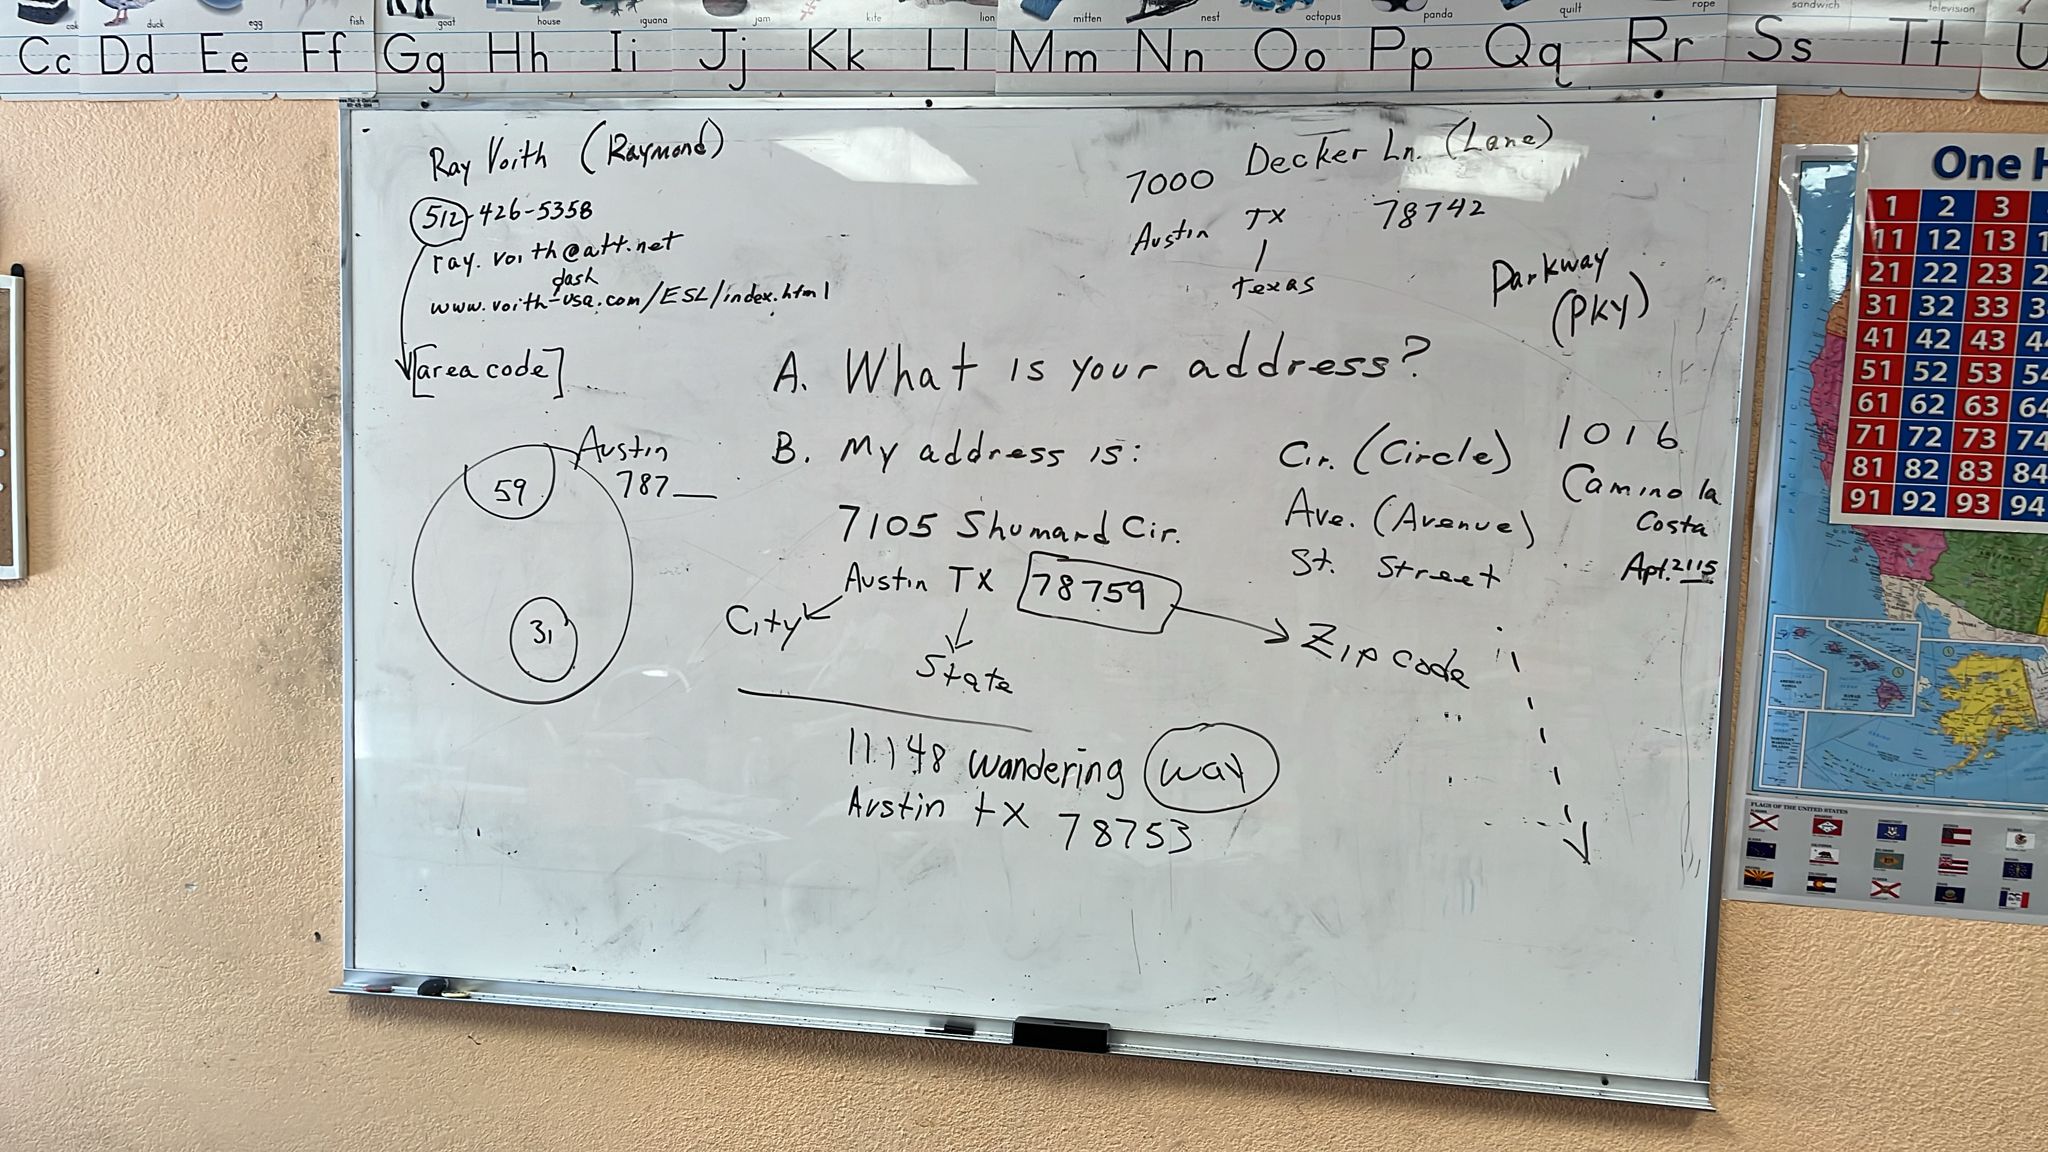 cak duck egg fish goat house iguana jam kite lion mitten nest octopus panda quilt rope sandwich television
Cc Dd Ee Ff Gg Hh Ii Jj Kk Ll Mm Nn Oo Pp Qq Rr Ss Tt U
Ray Voith (Raymond)
512-426-5358
ray.voith@att.net
dash
www.voith-usa.com/ESL/index.html
[area code]
7000 Decker Ln. (Lane)
Austin TX 78742
Texas
Parkway
(PKY)
A. What is your address?
B. My address is:
7105 Shumard Cir.
Austin TX 78759
City
State
Zip code
Cir. (Circle)
Ave. (Avenue)
St. Street
1016
Camino la
Costa
Apt. 2115
Austin
787__
59
31
11148 wandering way
Austin tx 78753
One H
1 2 3
11 12 13 1
21 22 23 2
31 32 33 3
41 42 43 4
51 52 53 54
61 62 63 64
71 72 73 74
81 82 83 84
91 92 93 94
FLAGS OF THE UNITED STATES